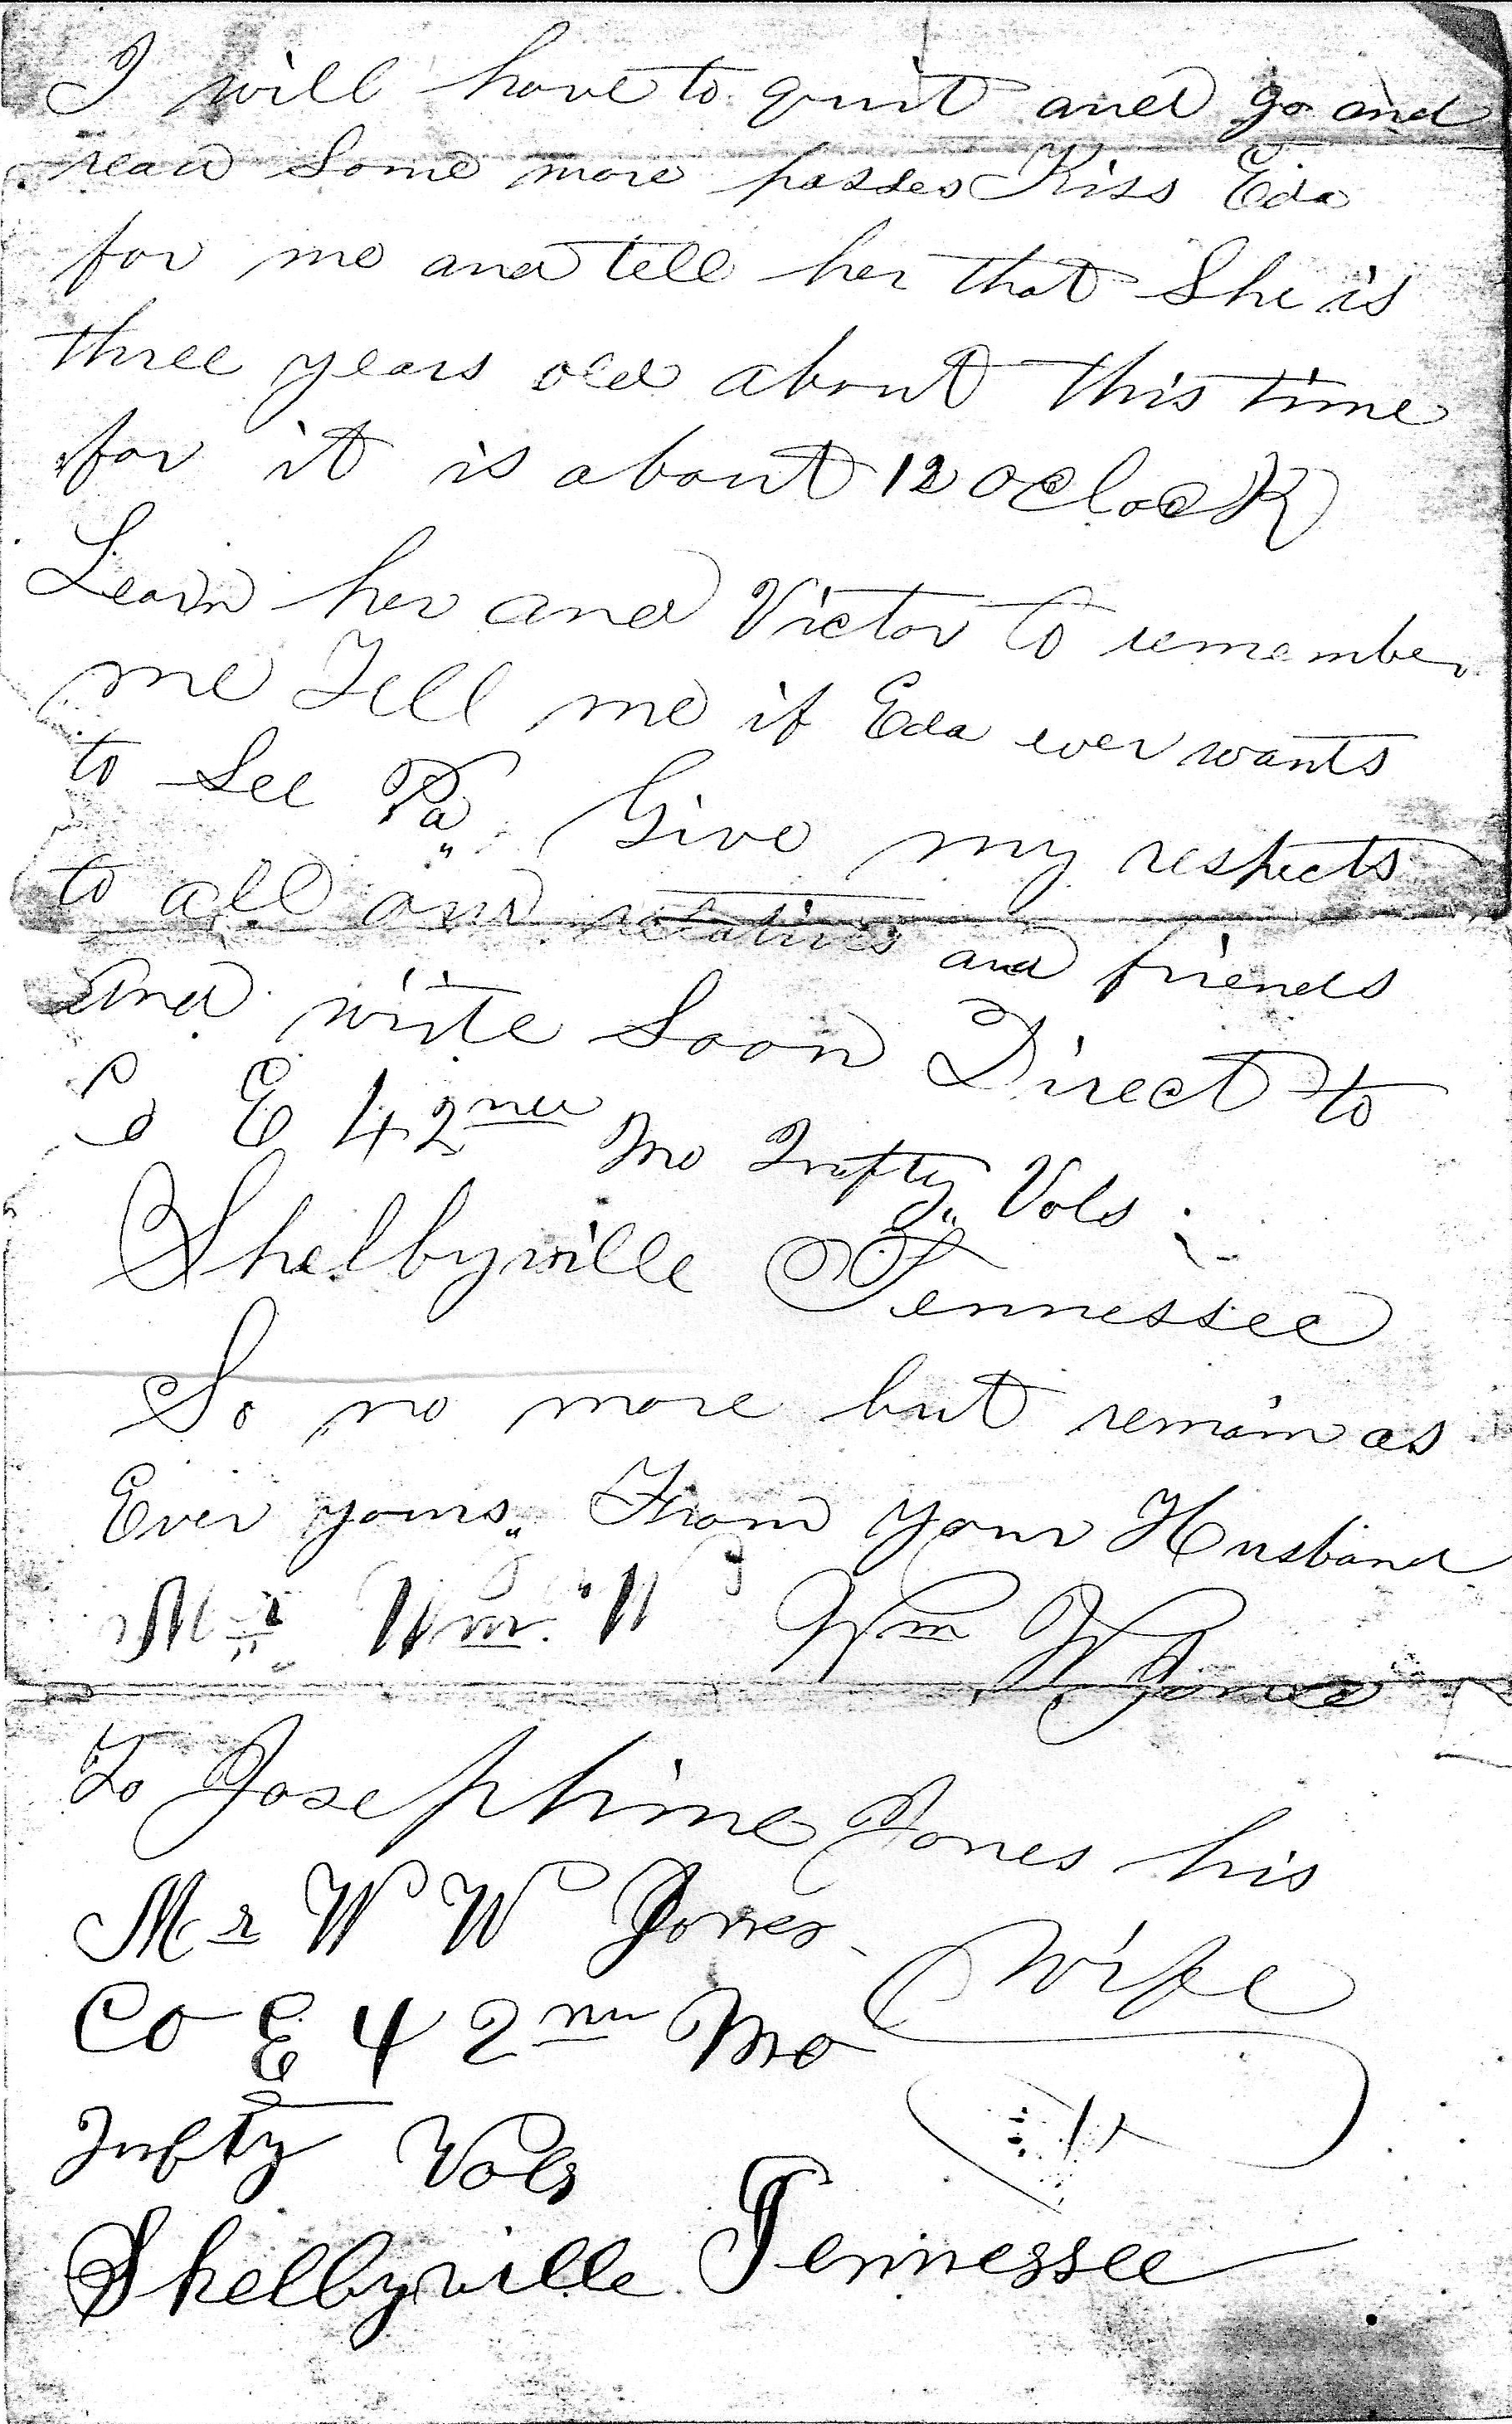 I will have to quit and go and
read Some more passes Kiss Eda
for me and tell her that She is
three years old about this time
for it is about 12 oclock
Learn her and Victor to remember
me Tell me if Eda ever wants
to See Pa„ Give my respects
to all our relatives and friends
and write Soon Direct to
Co E 42nd Mo Infty„ Vols
Shelbyville Tennessee
So no more but remain as
Ever yours„ From your Husband
Mr Wm. W Wm W Jones
To Josephine Jones his
Wife
Mr W W Jones
Co E 42nd Mo
Infty Vols
Shelbyville Tennessee